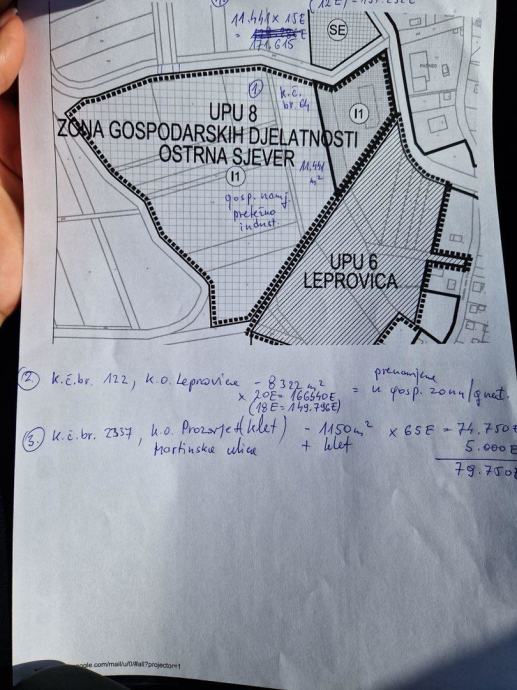 (12E) =
11.441 x 15E
=
171.615
SE
1
k.č.
br. 64
I1
UPU 8
ZONA GOSPODARSKIH DJELATNOSTI
OSTRNA SJEVER
11.441
m²
I1
gosp. namj.
pretežno
indust.
UPU 6
LEPROVICA
2. k.č.br. 122, k.o. Leprovica - 8322 m²
x 20E = 166540E
(18E = 149.796E)
= prenamjena
u gosp. zonu/
3. k.č.br. 2337, k.o. Prozorje (klet) - 1150m² x 65E = 74.750E
Martinska ulica + klet 5.000E
79.750E
oogle.com/mail/u/0/#all?projector=1